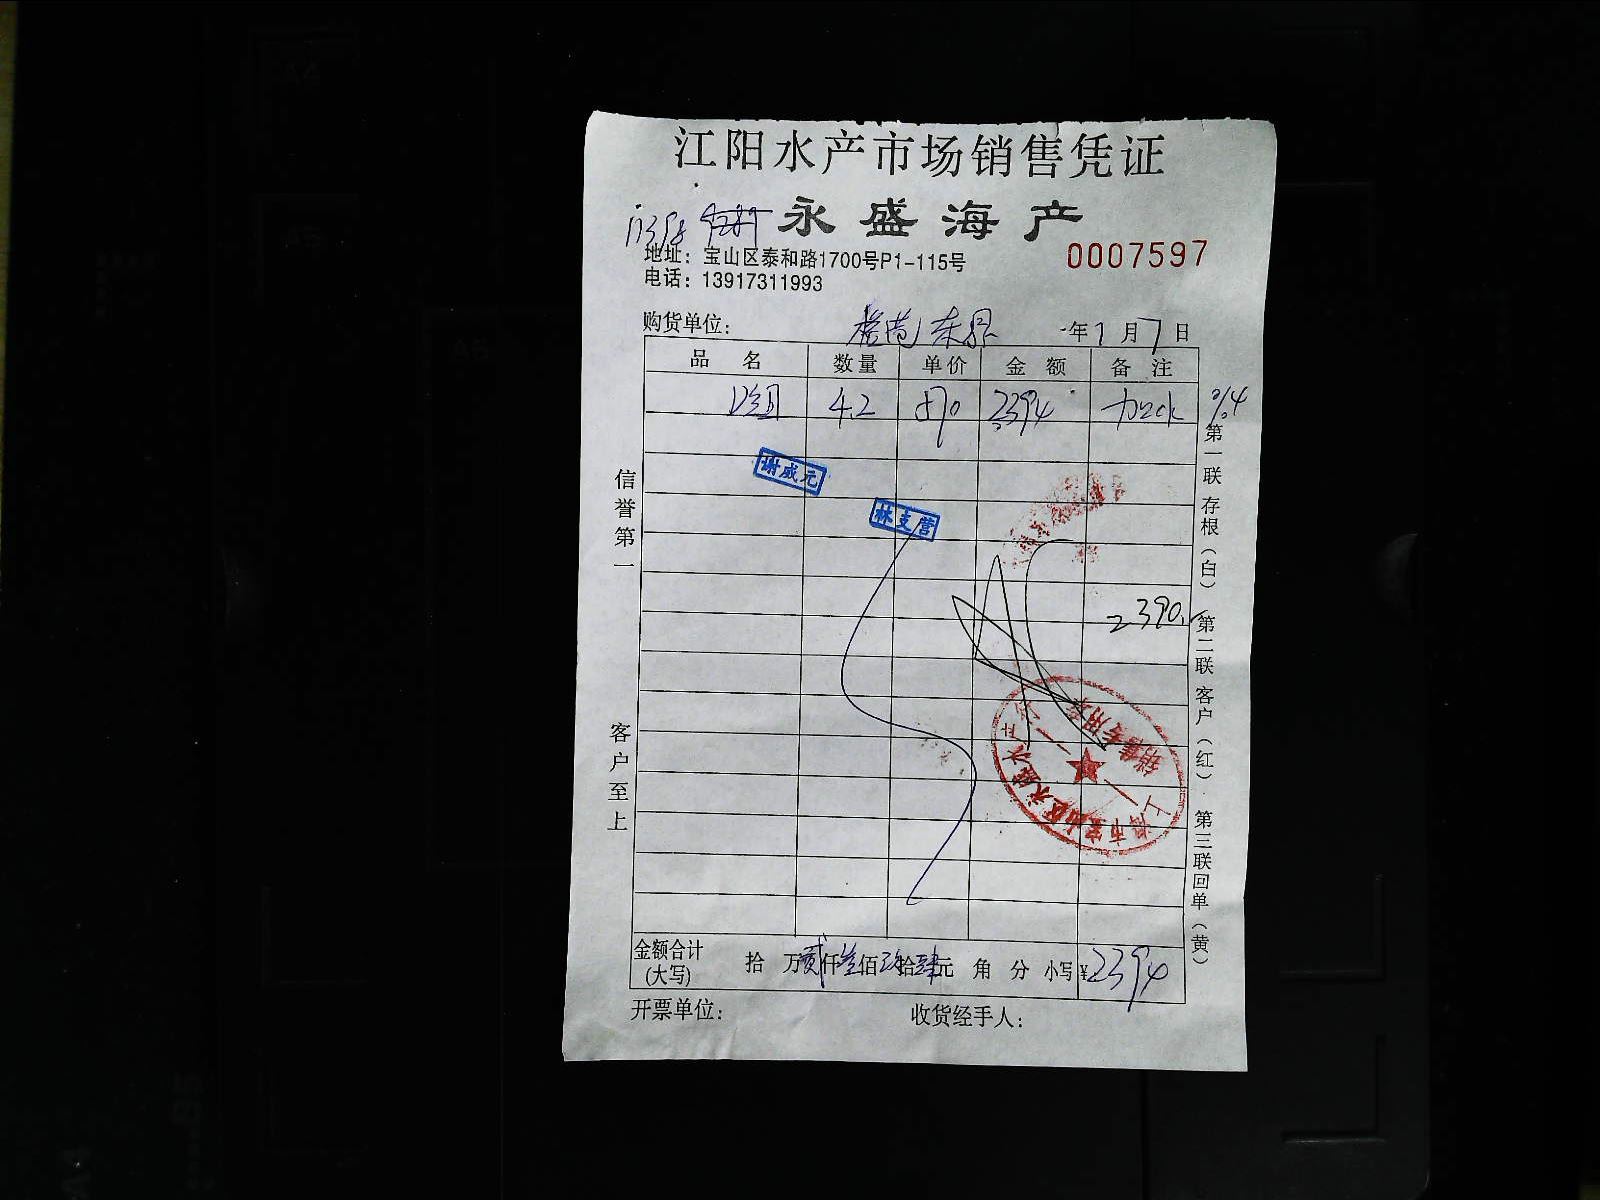 江阳水产市场销售凭证
永盛海产
地址：宝山区泰和路1700号P1-115号
0007597
电话：13917311993
购货单位： 年 1 月 7 日
品 名 数量 单价 金 额 备 注
4.2 570 2394
谢威元
林支营
2390.
信誉第一
客户至上
第一联 存根（白） 第二联 客户（红） 第三联 回单（黄）
上海市宝山区永盛水产
销售专用章
金额合计(大写) 拾 万 贰 仟 叁 佰 玖 拾 肆 元 角 分 小写¥ 2394
开票单位： 收货经手人：